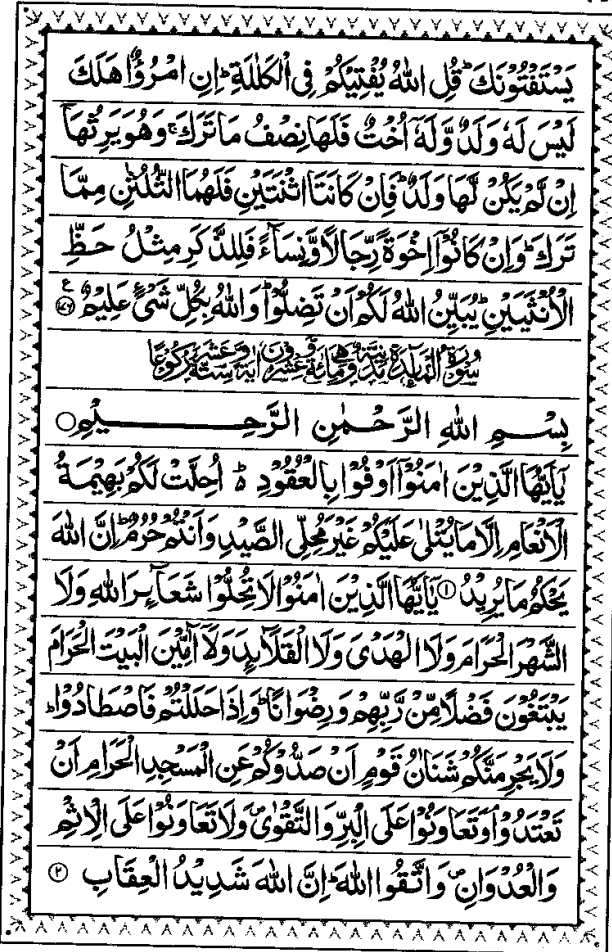 يَسْتَفْتُوْنَكَ ؕ قُلِ اللّٰهُ يُفْتِيْكُمْ فِى الْكَلٰلَةِ ؕ اِنِ امْرُؤٌا هَلَكَ
لَيْسَ لَهٗ وَلَدٌ وَّلَهٗۤ اُخْتٌ فَلَهَا نِصْفُ مَا تَرَكَ ۚ وَهُوَ يَرِثُهَاۤ
اِنْ لَّمْ يَكُنْ لَّهَا وَلَدٌ ؕ فَاِنْ كَانَتَا اثْنَتَيْنِ فَلَهُمَا الثُّلُثٰنِ مِمَّا
تَرَكَ ؕ وَاِنْ كَانُوْۤا اِخْوَةً رِّجَالًا وَّنِسَآءً فَلِلذَّكَرِ مِثْلُ حَظِّ
الْاُنْثَيَيْنِ ؕ يُبَيِّنُ اللّٰهُ لَكُمْ اَنْ تَضِلُّوْا ؕ وَاللّٰهُ بِكُلِّ شَىْءٍ عَلِيْمٌ ۧ
سُوْرَةُ الْمَآئِدَةِ مَدَنِيَّةٌ وَّهِىَ مِائَةٌ وَّعِشْرُوْنَ اٰيَةً وَّسِتَّةَ عَشَرَ رُكُوْعًا
بِسْمِ اللّٰهِ الرَّحْمٰنِ الرَّحِيْمِ ○
يٰۤاَيُّهَا الَّذِيْنَ اٰمَنُوْۤا اَوْفُوْا بِالْعُقُوْدِ ؕ اُحِلَّتْ لَكُمْ بَهِيْمَةُ
الْاَنْعَامِ اِلَّا مَا يُتْلٰى عَلَيْكُمْ غَيْرَ مُحِلِّى الصَّيْدِ وَاَنْتُمْ حُرُمٌ ؕ اِنَّ اللّٰهَ
يَحْكُمُ مَا يُرِيْدُ ۝۱ يٰۤاَيُّهَا الَّذِيْنَ اٰمَنُوْا لَا تُحِلُّوْا شَعَآئِرَ اللّٰهِ وَلَا
الشَّهْرَ الْحَرَامَ وَلَا الْهَدْىَ وَلَا الْقَلَآئِدَ وَلَاۤ آٰمِّيْنَ الْبَيْتَ الْحَرَامَ
يَبْتَغُوْنَ فَضْلًا مِّنْ رَّبِّهِمْ وَرِضْوَانًا ؕ وَاِذَا حَلَلْتُمْ فَاصْطَادُوْا ؕ
وَلَا يَجْرِمَنَّكُمْ شَنَاٰنُ قَوْمٍ اَنْ صَدُّوْكُمْ عَنِ الْمَسْجِدِ الْحَرَامِ اَنْ
تَعْتَدُوْا ۘ وَتَعَاوَنُوْا عَلَى الْبِرِّ وَالتَّقْوٰى ۪ وَلَا تَعَاوَنُوْا عَلَى الْاِثْمِ
وَالْعُدْوَانِ ۪ وَاتَّقُوا اللّٰهَ ؕ اِنَّ اللّٰهَ شَدِيْدُ الْعِقَابِ ۝۲